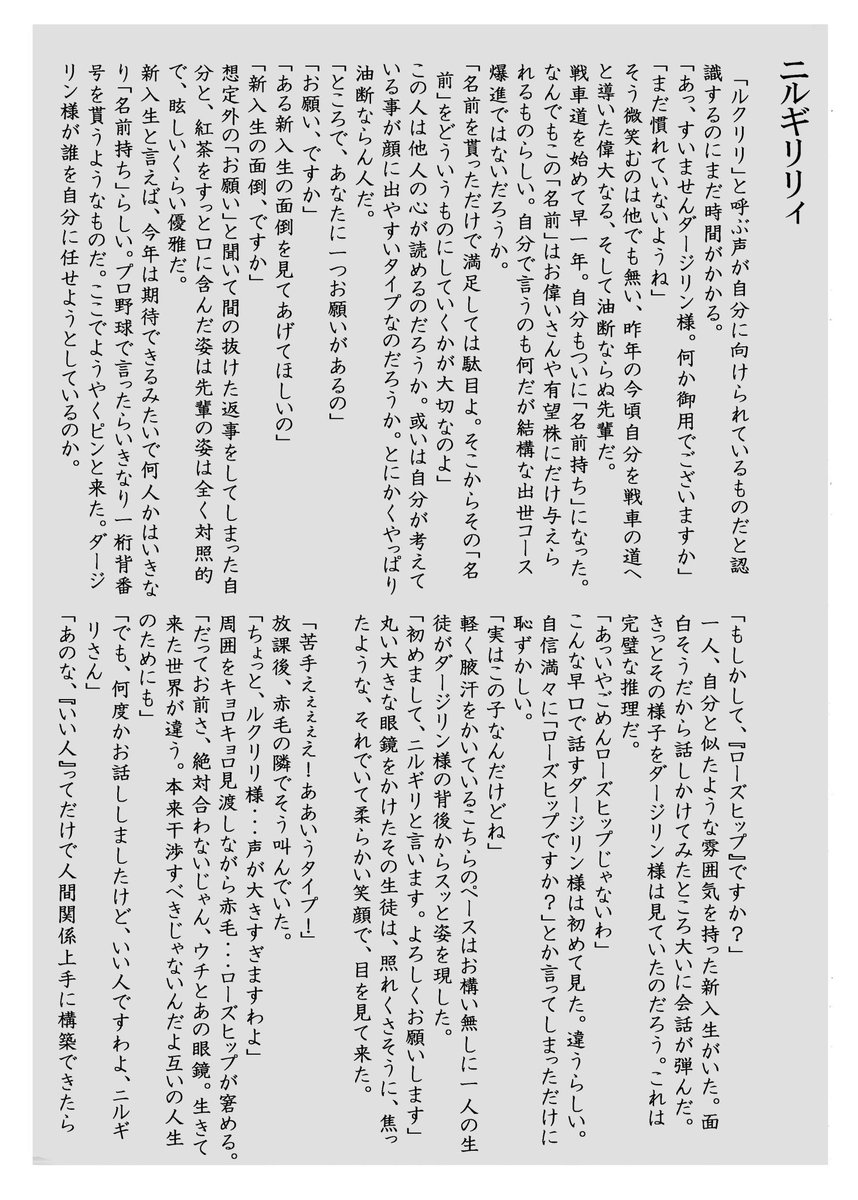 ニルギリリィ
「ルクリリ」と呼ぶ声が自分に向けられているものだと認
識するのにまだ時間がかかる。
「あっ、すいませんダージリン様。何か御用でございますか」
「まだ慣れていないようね」
そう微笑むのは他でも無い、昨年の今頃自分を戦車の道へ
と導いた偉大なる、そして油断ならぬ先輩だ。
戦車道を始めて早一年。自分もついに「名前持ち」になった。
なんでもこの「名前」はお偉いさんや有望株にだけ与えら
れるものらしい。自分で言うのも何だが結構な出世コース
爆進ではないだろうか。
「名前を貰っただけで満足しては駄目よ。そこからその「名
前」をどういうものにしていくかが大切なのよ」
この人は他人の心が読めるのだろうか。或いは自分が考えて
いる事が顔に出やすいタイプなのだろうか。とにかくやっぱり
油断ならん人だ。
「ところで、あなたに一つお願いがあるの」
「お願い、ですか」
「ある新入生の面倒を見てあげてほしいの」
「新入生の面倒、ですか」
想定外の「お願い」と聞いて間の抜けた返事をしてしまった自
分と、紅茶をすっと口に含んだ姿は先輩の姿は全く対照的
で、眩しいくらい優雅だ。
新入生と言えば、今年は期待できるみたいで何人かはいきな
り「名前持ち」らしい。プロ野球で言ったらいきなり一桁背番
号を貰うようなものだ。ここでようやくピンと来た。ダージ
リン様が誰を自分に任せようとしているのか。
「もしかして、『ローズヒップ』ですか？」
一人、自分と似たような雰囲気を持った新入生がいた。面
白そうだから話しかけてみたところ大いに会話が弾んだ。
きっとその様子をダージリン様は見ていたのだろう。これは
完璧な推理だ。
「あっいやごめんローズヒップじゃないわ」
こんな早口で話すダージリン様は初めて見た。違うらしい。
自信満々に「ローズヒップですか？」とか言ってしまっただけに
恥ずかしい。
「実はこの子なんだけどね」
軽く腋汗をかいているこちらのペースはお構い無しに一人の生
徒がダージリン様の背後からスッと姿を現した。
「初めまして、ニルギリと言います。よろしくお願いします」
丸い大きな眼鏡をかけたその生徒は、照れくさそうに、焦っ
たような、それでいて柔らかい笑顔で、目を見て来た。
「苦手えぇぇぇえ！ああいうタイプ！」
放課後、赤毛の隣でそう叫んでいた。
「ちょっと、ルクリリ様・・・声が大きすぎますわよ」
周囲をキョロキョロ見渡しながら赤毛・・・ローズヒップが窘める。
「だってお前さ、絶対合わないじゃん、ウチとあの眼鏡。生きて
来た世界が違う。本来干渉すべきじゃないんだよ互いの人生
のためにも」
「でも、何度かお話ししましたけど、いい人ですわよ、ニルギ
リさん」
「あのな、『いい人』ってだけで人間関係上手に構築できたら